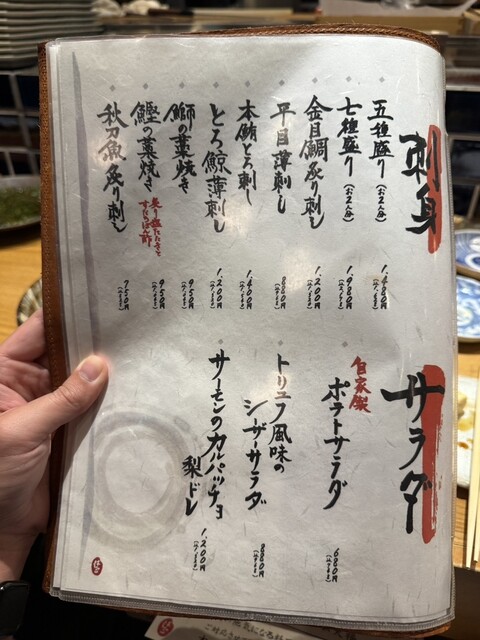 刺身
五種盛り（お2人分）
1,480円
七種盛り（お2人分）
1,980円
金目鯛炙り刺し
1,200円
平目薄刺し
880円
本鮪とろ刺し
1,400円
とろ鯨薄刺し
1,200円
鰤の藁焼き
950円
鰹の藁焼き
950円
秋刀魚炙り刺し
750円
サラダ
自家製
ポテトサラダ
680円
トリュフ風味の
シーザーサラダ
880円
サーモンのカルパッチョ
梨ドレ
1,200円